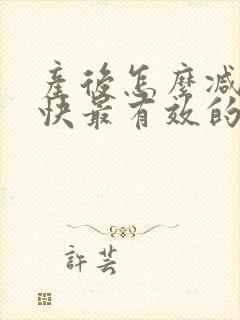 產後怎麼減
快最有效的
許芸